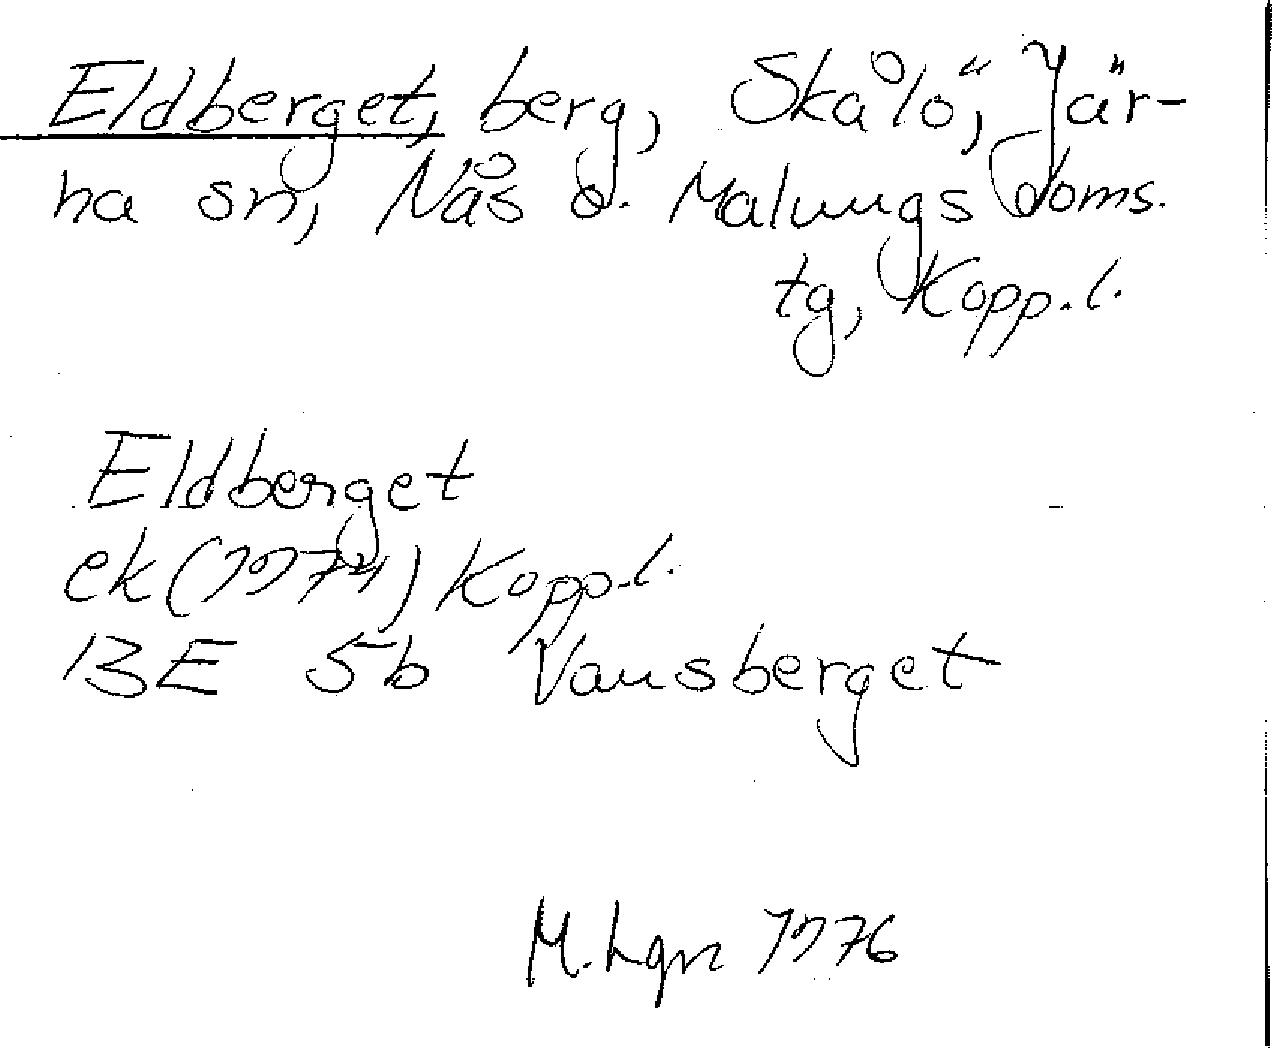 Eldberget, berg, Skålö, Jär-
na sn, Nås o. Malungs doms.
tg, Kopp.l.
Eldberget
ek (1974) Kopp.l.
13E 5b Vansberget
M. Lgn 1976